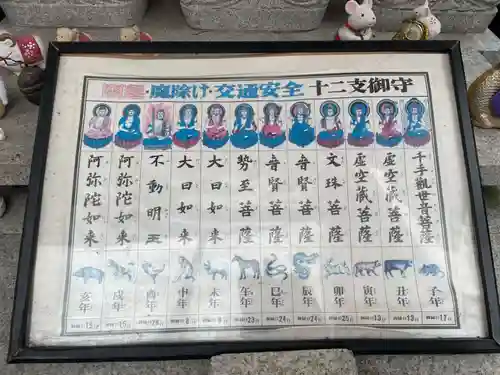 魔除け・交通安全 十二支御守
千手觀世音菩薩
虚空蔵菩薩
虚空蔵菩薩
文珠菩薩
普賢菩薩
普賢菩薩
勢至菩薩
大日如来
大日如来
不動明王
阿弥陀如来
阿弥陀如来
子年
丑年
寅年
卯年
辰年
巳年
午年
未年
申年
酉年
戌年
亥年